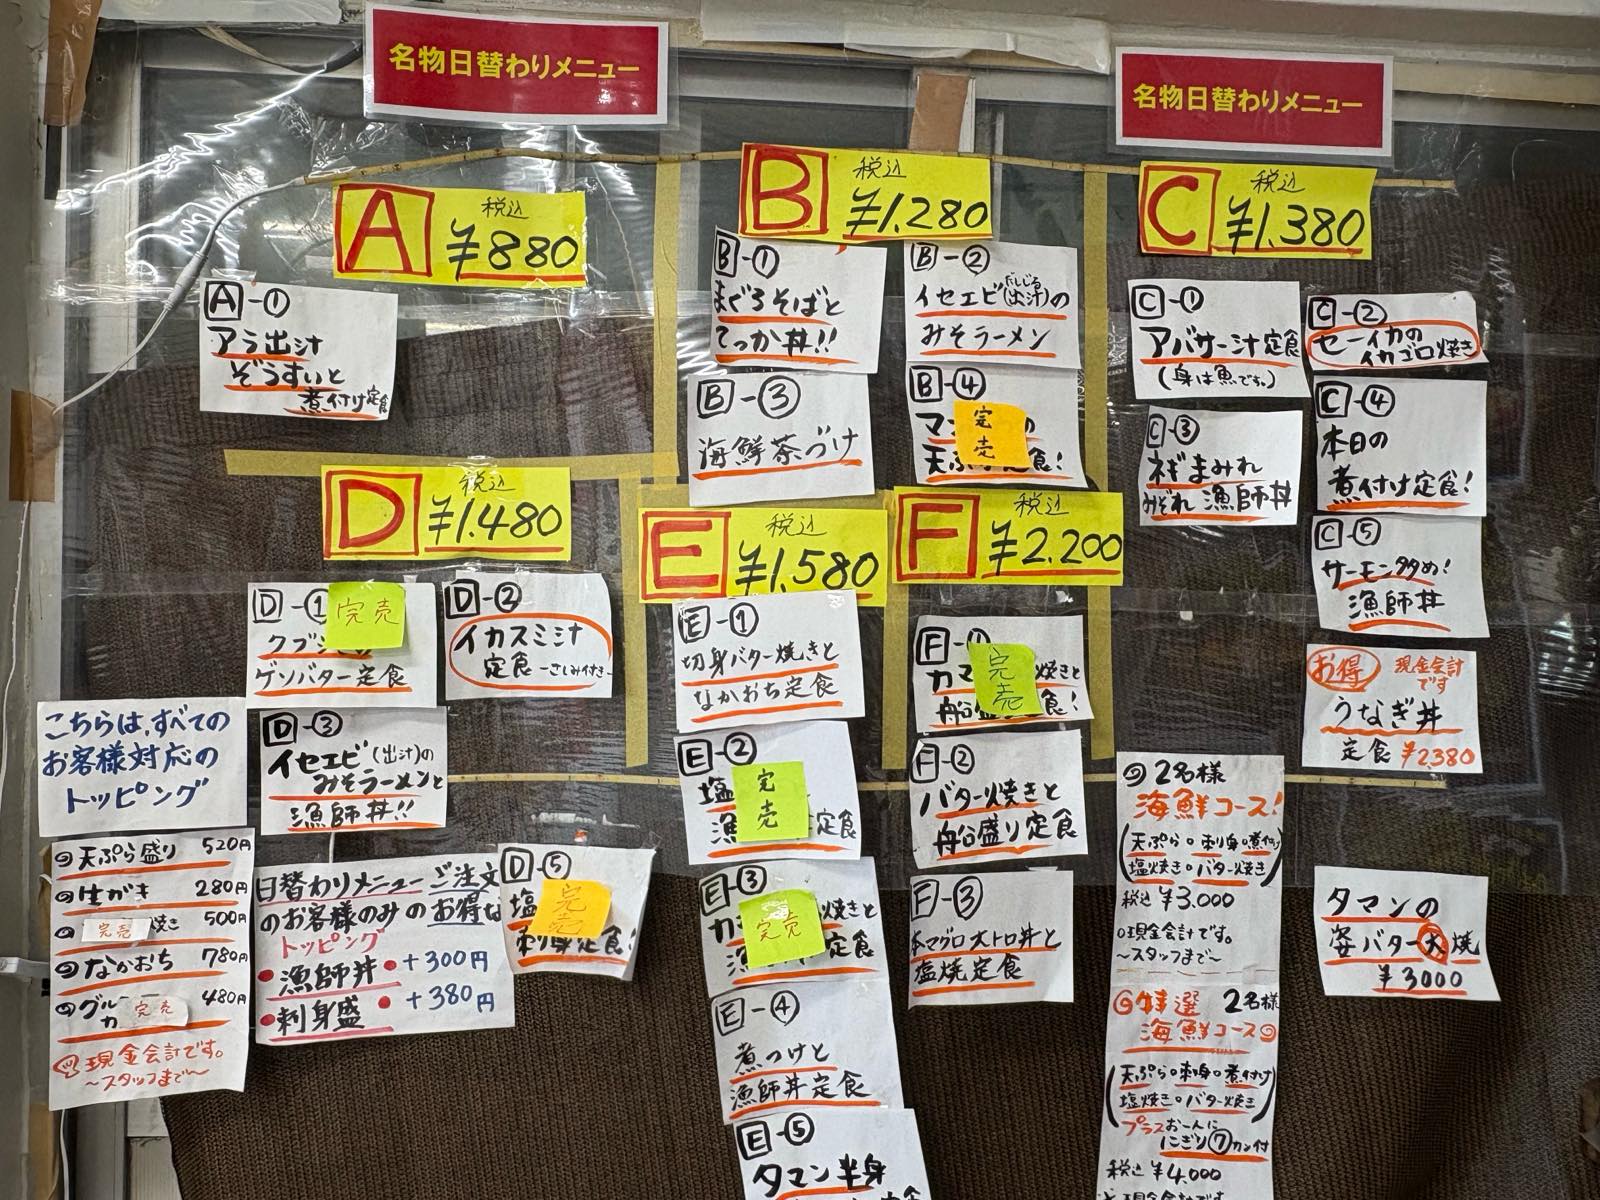 名物日替わりメニュー
名物日替わりメニュー
A 税込
¥880
A-①
アラ出汁
ぞうすいと
煮付け定食
B 税込
¥1.280
B-①
まぐろそばと
てっか丼!!
B-②
だしじる
イセエビ(出汁)の
みそラーメン
B-③
海鮮茶づけ
B-④
完売
天ぷら定食!
C 税込
¥1.380
C-①
アバサー汁定食
(身は魚です。)
C-②
セーイカの
イカゴロ焼き
C-③
ネギまみれ
みぞれ漁師丼
C-④
本日の
煮付け定食!
C-⑤
サーモン多め!
漁師丼
お得 現金会計
です
うなぎ丼
定食 ¥2,380
D 税込
¥1.480
D-①
完売
ゲソバター定食
D-②
イカスミ汁
定食 -さしみ付き-
D-③
イセエビ(出汁)の
みそラーメンと
漁師丼!!
D-⑤
完売
塩
刺身定食!
E 税込
¥1.580
E-①
切身バター焼きと
なかおち定食
E-②
塩 完売
漁 定食
E-③
完売 焼きと
定食
E-④
煮つけと
漁師丼定食
E-⑤
タマン半身
F 税込
¥2.200
F-①
カマ 完売 焼きと
船盛 定食!
F-②
バター焼きと
船盛り定食
F-③
本マグロ大トロ丼と
塩焼定食
こちらは、すべての
お客様対応の
トッピング
天ぷら盛り 520円
生がき 280円
完売 焼き 500円
なかおち 780円
グル 完売 480円
カ
現金会計です。
〜スタッフまで〜
日替わりメニューご注文
のお客様のみのお得な
トッピング
・漁師丼・+300円
・刺身盛・+380円
2名様
海鮮コース!
(天ぷら・刺身・煮付け
塩焼き・バター焼き)
税込¥3.000
現金会計です。
〜スタッフまで〜
特選 2名様
海鮮コース
(天ぷら・刺身・煮付け
塩焼き・バター焼き)
プラスおーんに
にぎり⑦カン付
税込¥4.000
現金会計です
タマンの
姿バター大焼
¥3000